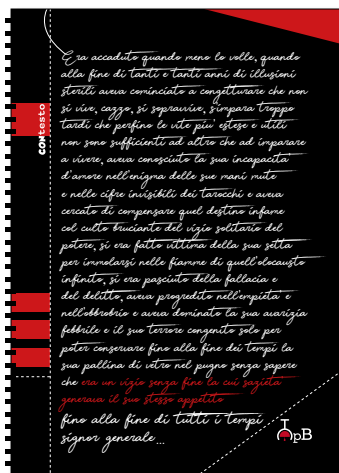 Era accaduto quando meno lo volle, quando
alla fine di tanti e tanti anni di illusioni
sterili aveva cominciato a congetturare che non
si vive, cazzo, si sopravvive, s'impara troppo
tardi che perfino le vite piu' estese e utili
non sono sufficienti ad altro che ad imparare
a vivere, aveva conosciuto la sua incapacità
d'amore nell'enigma delle sue mani mute
e nelle cifre invisibili dei tarocchi e aveva
cercato di compensare quel destino infame
col culto bruciante del vizio solitario del
potere, si era fatto vittima della sua setta
per immolarsi nelle fiamme di quell'olocausto
infinito, si era pasciuto della fallacia e
del delitto, aveva progredito nell'empietà e
nell'obbrobrio e aveva dominato la sua avarizia
febbrile e il suo terrore congenito solo per
poter conservare fino alla fine dei tempi la
sua pallina di vetro nel pugno senza sapere
che era un vizio senza fine la cui sazietà
generava il suo stesso appetito
fino alla fine di tutti i tempi
signor generale...
CONtesto
TpB